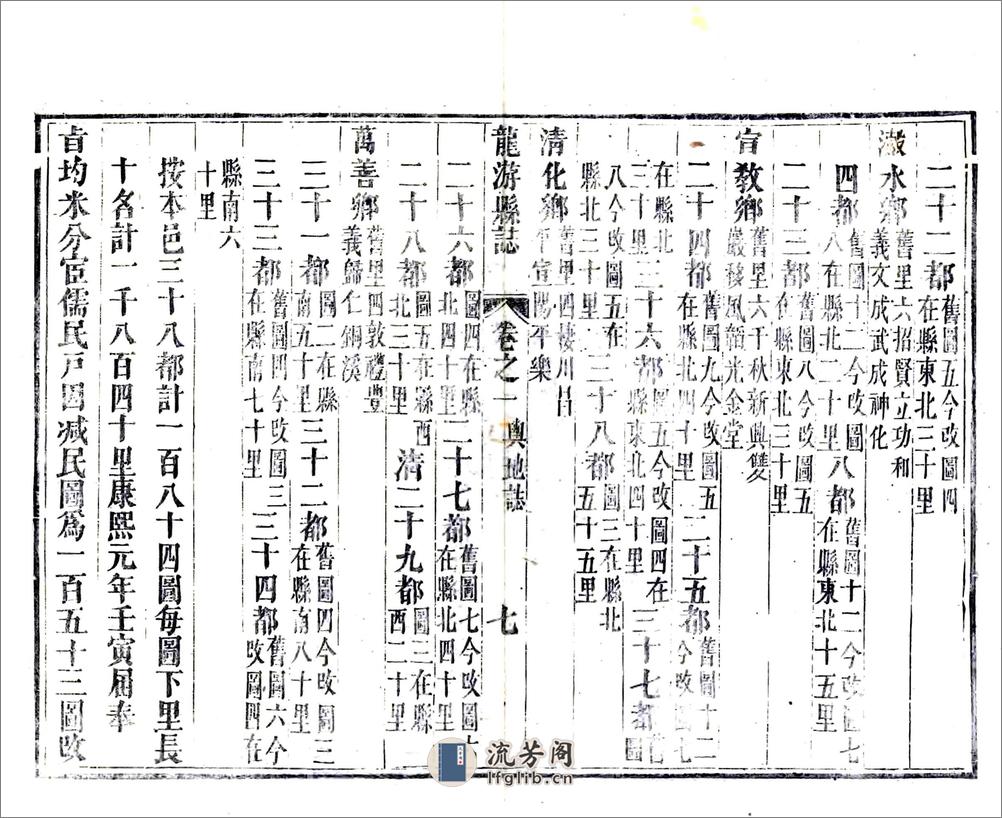 二十二都舊圖五今改圖四在縣東北三十里
瀫水鄉舊里六招賢立功和義文成武成神化
四都舊圖十二今改圖八在縣北二十里八都舊圖十二今改圖七在縣東北十五里
二十三都舊圖八今改圖五在縣東北三十里
宣教鄉舊里六千秋新興雙巖移風韶光金堂
二十四都舊圖九今改圖五在縣東北四十里二十五都舊圖十二今改圖七
在縣北三十里三十六都舊圖五今改圖四在縣東北四十里三十七都舊圖
八今改圖五在縣北三十里三十八都圖三在縣北五十五里
清化鄉舊里四棲川昌平宣陽平樂
龍游縣誌 卷之一 輿地誌 七
二十六都圖四在縣北四十里二十七都舊圖七今改圖七在縣北四十里
二十八都圖五在縣西北三十里清二十九都圖三在縣西二十里
萬善鄉舊里四敦禮豐義歸仁銅溪
三十一都圖二在縣南五十里三十二都舊圖四今改圖三在縣南八十里
三十三都舊圖四今改圖三在縣南七十里三十四都舊圖六今改圖四在
縣南六十里
按本邑三十八都計一百八十四圖每圖下里長
十名計一千八百四十里康熙元年壬寅屆奉
旨均米分宦儒民戶因減民圖爲一百五十三圖改
流芳阁
lfglib.cn